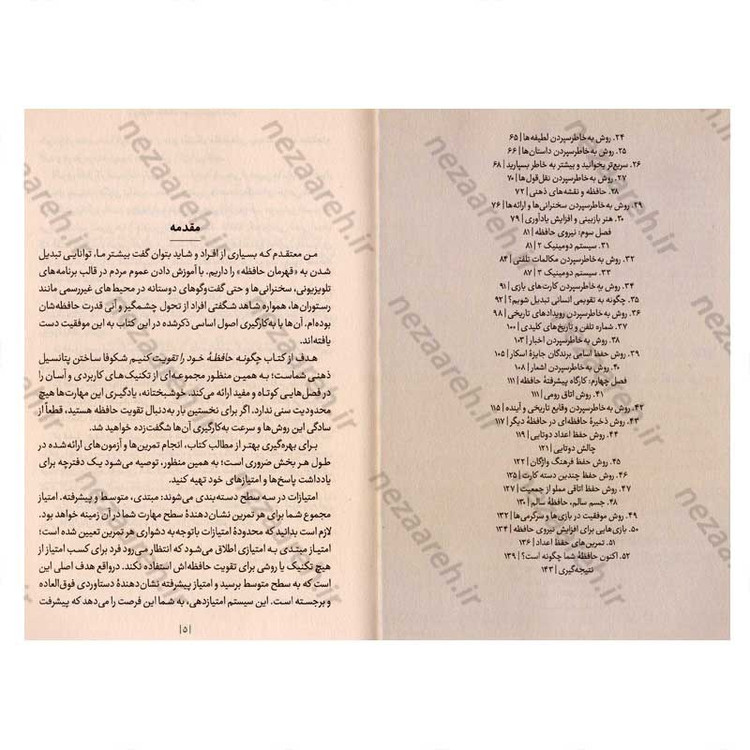 ۲۴. روش به‌خاطرسپردن لطیفه‌ها | ۶۵
۲۵. روش به‌خاطرسپردن داستان‌ها | ۶۶
۲۶. سریع‌تر بخوانید و بیشتر به خاطر بسپارید | ۶۸
۲۷. روش به‌خاطرسپردن نقل‌قول‌ها | ۷۰
۲۸. حافظه و نقشه‌های ذهنی | ۷۲
۲۹. روش به‌خاطرسپردن سخنرانی‌ها و ارائه‌ها | ۷۶
۳۰. هنر بازبینی و افزایش یادآوری | ۷۹
فصل سوم: نیروی حافظه | ۸۱
۳۱. سیستم دومینیک ۲ | ۸۱
۳۲. روش به‌خاطرسپردن مکالمات تلفنی | ۸۴
۳۳. سیستم دومینیک ۳ | ۸۷
۳۴. روش به‌خاطرسپردن کارت‌های بازی | ۹۱
۳۵. چگونه به تقویمی انسانی تبدیل شویم؟ | ۹۲
۳۶. روش به‌خاطرسپردن رویدادهای تاریخی | ۹۸
۳۷. شماره تلفن و تاریخ‌های کلیدی | ۱۰۰
۳۸. روش به‌خاطرسپردن اخبار | ۱۰۳
۳۹. روش حفظ اسامی برندگان جایزهٔ اسکار | ۱۰۵
۴۰. روش به‌خاطرسپردن اشعار | ۱۰۸
فصل چهارم: کارگاه پیشرفتهٔ حافظه | ۱۱۱
۴۱. روش اتاق رومی | ۱۱۱
۴۲. روش به‌خاطرسپردن وقایع تاریخی و آینده | ۱۱۵
۴۳. روش ذخیرهٔ حافظه‌ای در حافظهٔ دیگر | ۱۱۷
۴۴. روش حفظ اعداد دوتایی | ۱۱۹
چالش دوتایی | ۱۲۱
۴۵. روش حفظ فرهنگ واژگان | ۱۲۲
۴۶. روش حفظ چندین دسته کارت | ۱۲۵
۴۷. روش حفظ اتاقی مملو از جمعیت | ۱۲۷
۴۸. جسم سالم، حافظهٔ سالم | ۱۳۰
۴۹. روش موفقیت در بازی‌ها و سرگرمی‌ها | ۱۳۲
۵۰. بازی‌هایی برای افزایش نیروی حافظه | ۱۳۴
۵۱. تمرین‌های حفظ اعداد | ۱۳۶
۵۲. اکنون حافظهٔ شما چگونه است؟ | ۱۳۹
نتیجه‌گیری | ۱۴۳
مقدمه
من معتقدم که بسیاری از افراد و شاید بتوان گفت بیشتر ما، توانایی تبدیل
شدن به «قهرمان حافظه» را داریم. با آموزش دادن عموم مردم در قالب برنامه‌های
تلویزیونی، سخنرانی‌ها و حتی گفت‌وگوهای دوستانه در محیط‌های غیررسمی مانند
رستوران‌ها، همواره شاهد شگفتی افراد از تحول چشمگیر و آنی قدرت حافظه‌شان
بوده‌ام. آن‌ها با به‌کارگیری اصول اساسی ذکرشده در این کتاب به این موفقیت دست
یافته‌اند.
هدف از کتاب چگونه حافظهٔ خود را تقویت کنیم شکوفا ساختن پتانسیل
ذهنی شماست؛ به همین منظور مجموعه‌ای از تکنیک‌های کاربردی و آسان را
در فصل‌هایی کوتاه و مفید ارائه می‌کند. خوشبختانه، یادگیری این مهارت‌ها هیچ
محدودیت سنی ندارد. اگر برای نخستین بار به‌دنبال تقویت حافظه هستید، قطعاً از
سادگی این روش‌ها و سرعت به‌کارگیری آن‌ها شگفت‌زده خواهید شد.
برای بهره‌گیری بهتر از مطالب کتاب، انجام تمرین‌ها و آزمون‌های ارائه‌شده در
طول هر بخش ضروری است؛ به همین منظور، توصیه می‌شود یک دفترچه برای
یادداشت پاسخ‌ها و امتیازهای خود تهیه کنید.
امتیازات در سه سطح دسته‌بندی می‌شوند: مبتدی، متوسط و پیشرفته. امتیاز
مجموع شما برای هر تمرین نشان‌دهندهٔ سطح مهارت شما در آن زمینه خواهد بود.
لازم است بدانید که محدودهٔ امتیازات باتوجه‌به دشواری هر تمرین تعیین شده است؛
امتیاز مبتدی به امتیازی اطلاق می‌شود که انتظار می‌رود فرد برای کسب امتیاز از
هیچ تکنیک یا روشی برای تقویت حافظه‌اش استفاده نکند. درواقع هدف اصلی این
است که به سطح متوسط برسید و امتیاز پیشرفته نشان‌دهندهٔ دستاوردی فوق‌العاده
و برجسته است. این سیستم امتیازدهی، به شما این فرصت را می‌دهد که پیشرفت
|۵|
nezaareh.ir
nezaareh.ir
nezaareh.ir
nezaareh.ir
nezaareh.ir
nezaareh.ir
nezaareh.ir
nezaareh.ir
nezaareh.ir